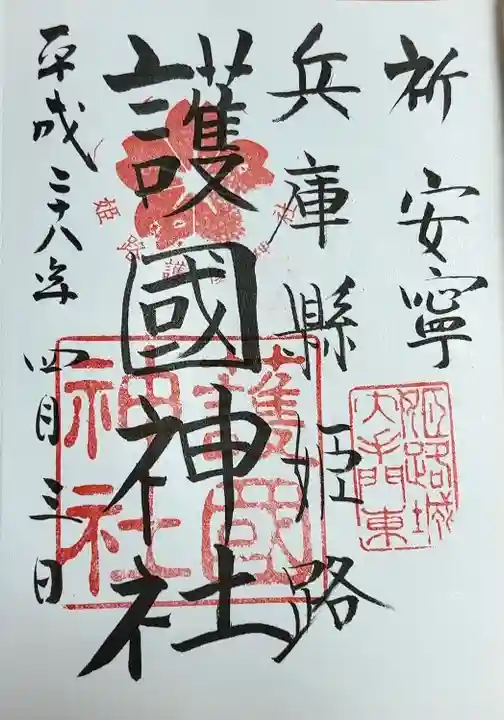 祈 安寧
兵庫縣姫路
護國神社
平成二十八年 四月 三日
姫路城
大手門東
護國
神社